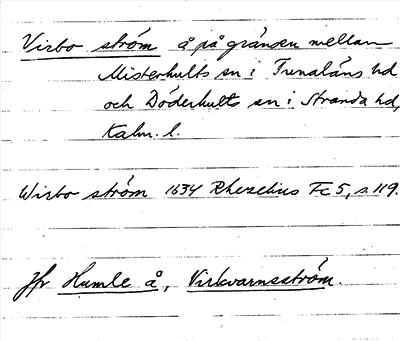 Virbo ström å på gränsen mellan
Misterhults sn i Tunaläns hd
och Döderhults sn i Stranda hd,
Kalm. l.
Wirbo ström 1634 Rhezelius Fc 5, s. 119.
Jfr Humle å, Virkvarnsström.